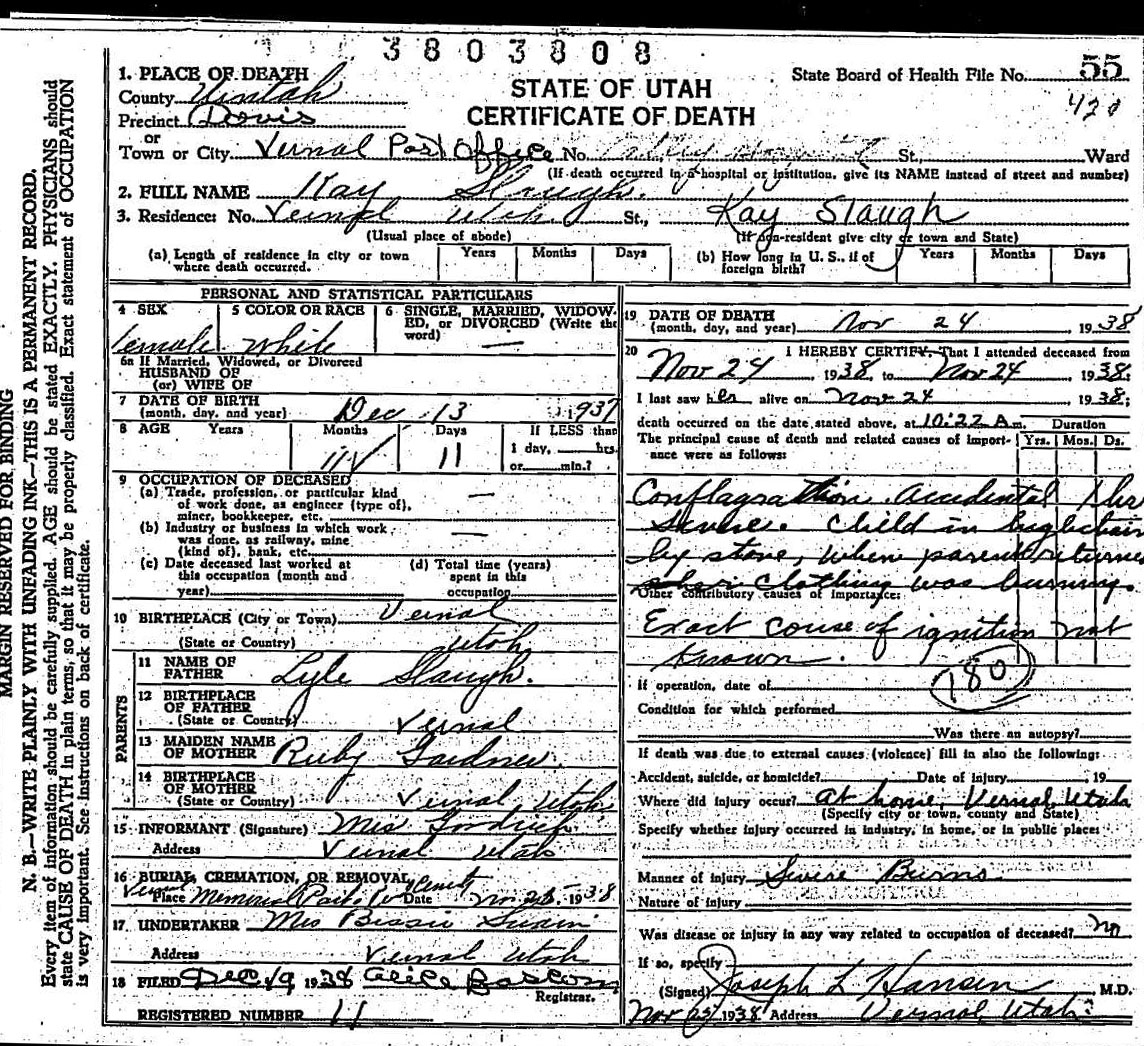 3803808
1. PLACE OF DEATH
STATE OF UTAH
CERTIFICATE OF DEATH
State Board of Health File No. 55
420
County Uintah
Precinct Davis
or
Town or City Vernal Post Office No. St., Ward
(If death occurred in a hospital or institution, give its NAME instead of street and number)
2. FULL NAME Kay Slaugh.
3. Residence: No. Vernal Utah St., Kay Slaugh
(Usual place of abode) (If non-resident give city or town and State)
(a) Length of residence in city or town where death occurred. Years Months Days
(b) How long in U. S., if of foreign birth? Years Months Days
PERSONAL AND STATISTICAL PARTICULARS
4 SEX female
5 COLOR OR RACE white
6 SINGLE, MARRIED, WIDOWED, or DIVORCED (Write the word) —
6a If Married, Widowed, or Divorced
HUSBAND OF
(or) WIFE OF
7 DATE OF BIRTH
(month, day, and year) Dec 13 1937
8 AGE Years Months 11 Days 11 If LESS than
1 day, hrs.
or min.?
9 OCCUPATION OF DECEASED
(a) Trade, profession, or particular kind
of work done, as engineer (type of),
miner, bookkeeper, etc. —
(b) Industry or business in which work
was done, as railway, mine
(kind of), bank, etc. —
(c) Date deceased last worked at
this occupation (month and
year)
(d) Total time (years)
spent in this
occupation
10 BIRTHPLACE (City or Town) Vernal
(State or Country) Utah
PARENTS
11 NAME OF
FATHER Lyle Slaugh.
12 BIRTHPLACE
OF FATHER
(State or Country) Vernal
13 MAIDEN NAME
OF MOTHER Ruby Gardner.
14 BIRTHPLACE
OF MOTHER
(State or Country) Vernal, Utah
15 INFORMANT (Signature) Mrs Goodrich
Address Vernal Utah
16 BURIAL, CREMATION, OR REMOVAL
Vernal
Place Memorial Park Date Nov 26 1938
17 UNDERTAKER Mrs Bessie Swain
Address Vernal Utah
18 FILED Dec 19 1938 Alice Bascom
Registrar.
REGISTERED NUMBER 11
19 DATE OF DEATH
(month, day, and year) Nov 24 1938
20 I HEREBY CERTIFY, That I attended deceased from
Nov 24, 1938, to Nov 24 1938;
I last saw her alive on Nov 24 1938;
death occurred on the date stated above, at 10:22 A m. Duration
The principal cause of death and related causes of importance were as follows: Yrs. Mos. Ds.
Conflagration. accidental 1 hr
Severe. Child in high chair
by stove, when parent returned
her clothing was burning.
Other contributory causes of importance:
Exact cause of ignition not
known.
180
If operation, date of
Condition for which performed
Was there an autopsy?
If death was due to external causes (violence) fill in also the following:
Accident, suicide, or homicide? Date of injury , 19
Where did injury occur? At home, Vernal, Utah
(Specify city or town, county and State)
Specify whether injury occurred in industry, in home, or in public place:
Manner of injury Severe Burns
Nature of injury
Was disease or injury in any way related to occupation of deceased? no
If so, specify
(Signed) Joseph L Hansen M.D.
Nov 25 1938 Address Vernal, Utah
MARGIN RESERVED FOR BINDING
N. B.—WRITE PLAINLY WITH UNFADING INK—THIS IS A PERMANENT RECORD.
Every item of information should be carefully supplied. AGE should be stated EXACTLY. PHYSICIANS should
state CAUSE OF DEATH in plain terms, so that it may be properly classified. Exact statement of OCCUPATION
is very important. See instructions on back of certificate.